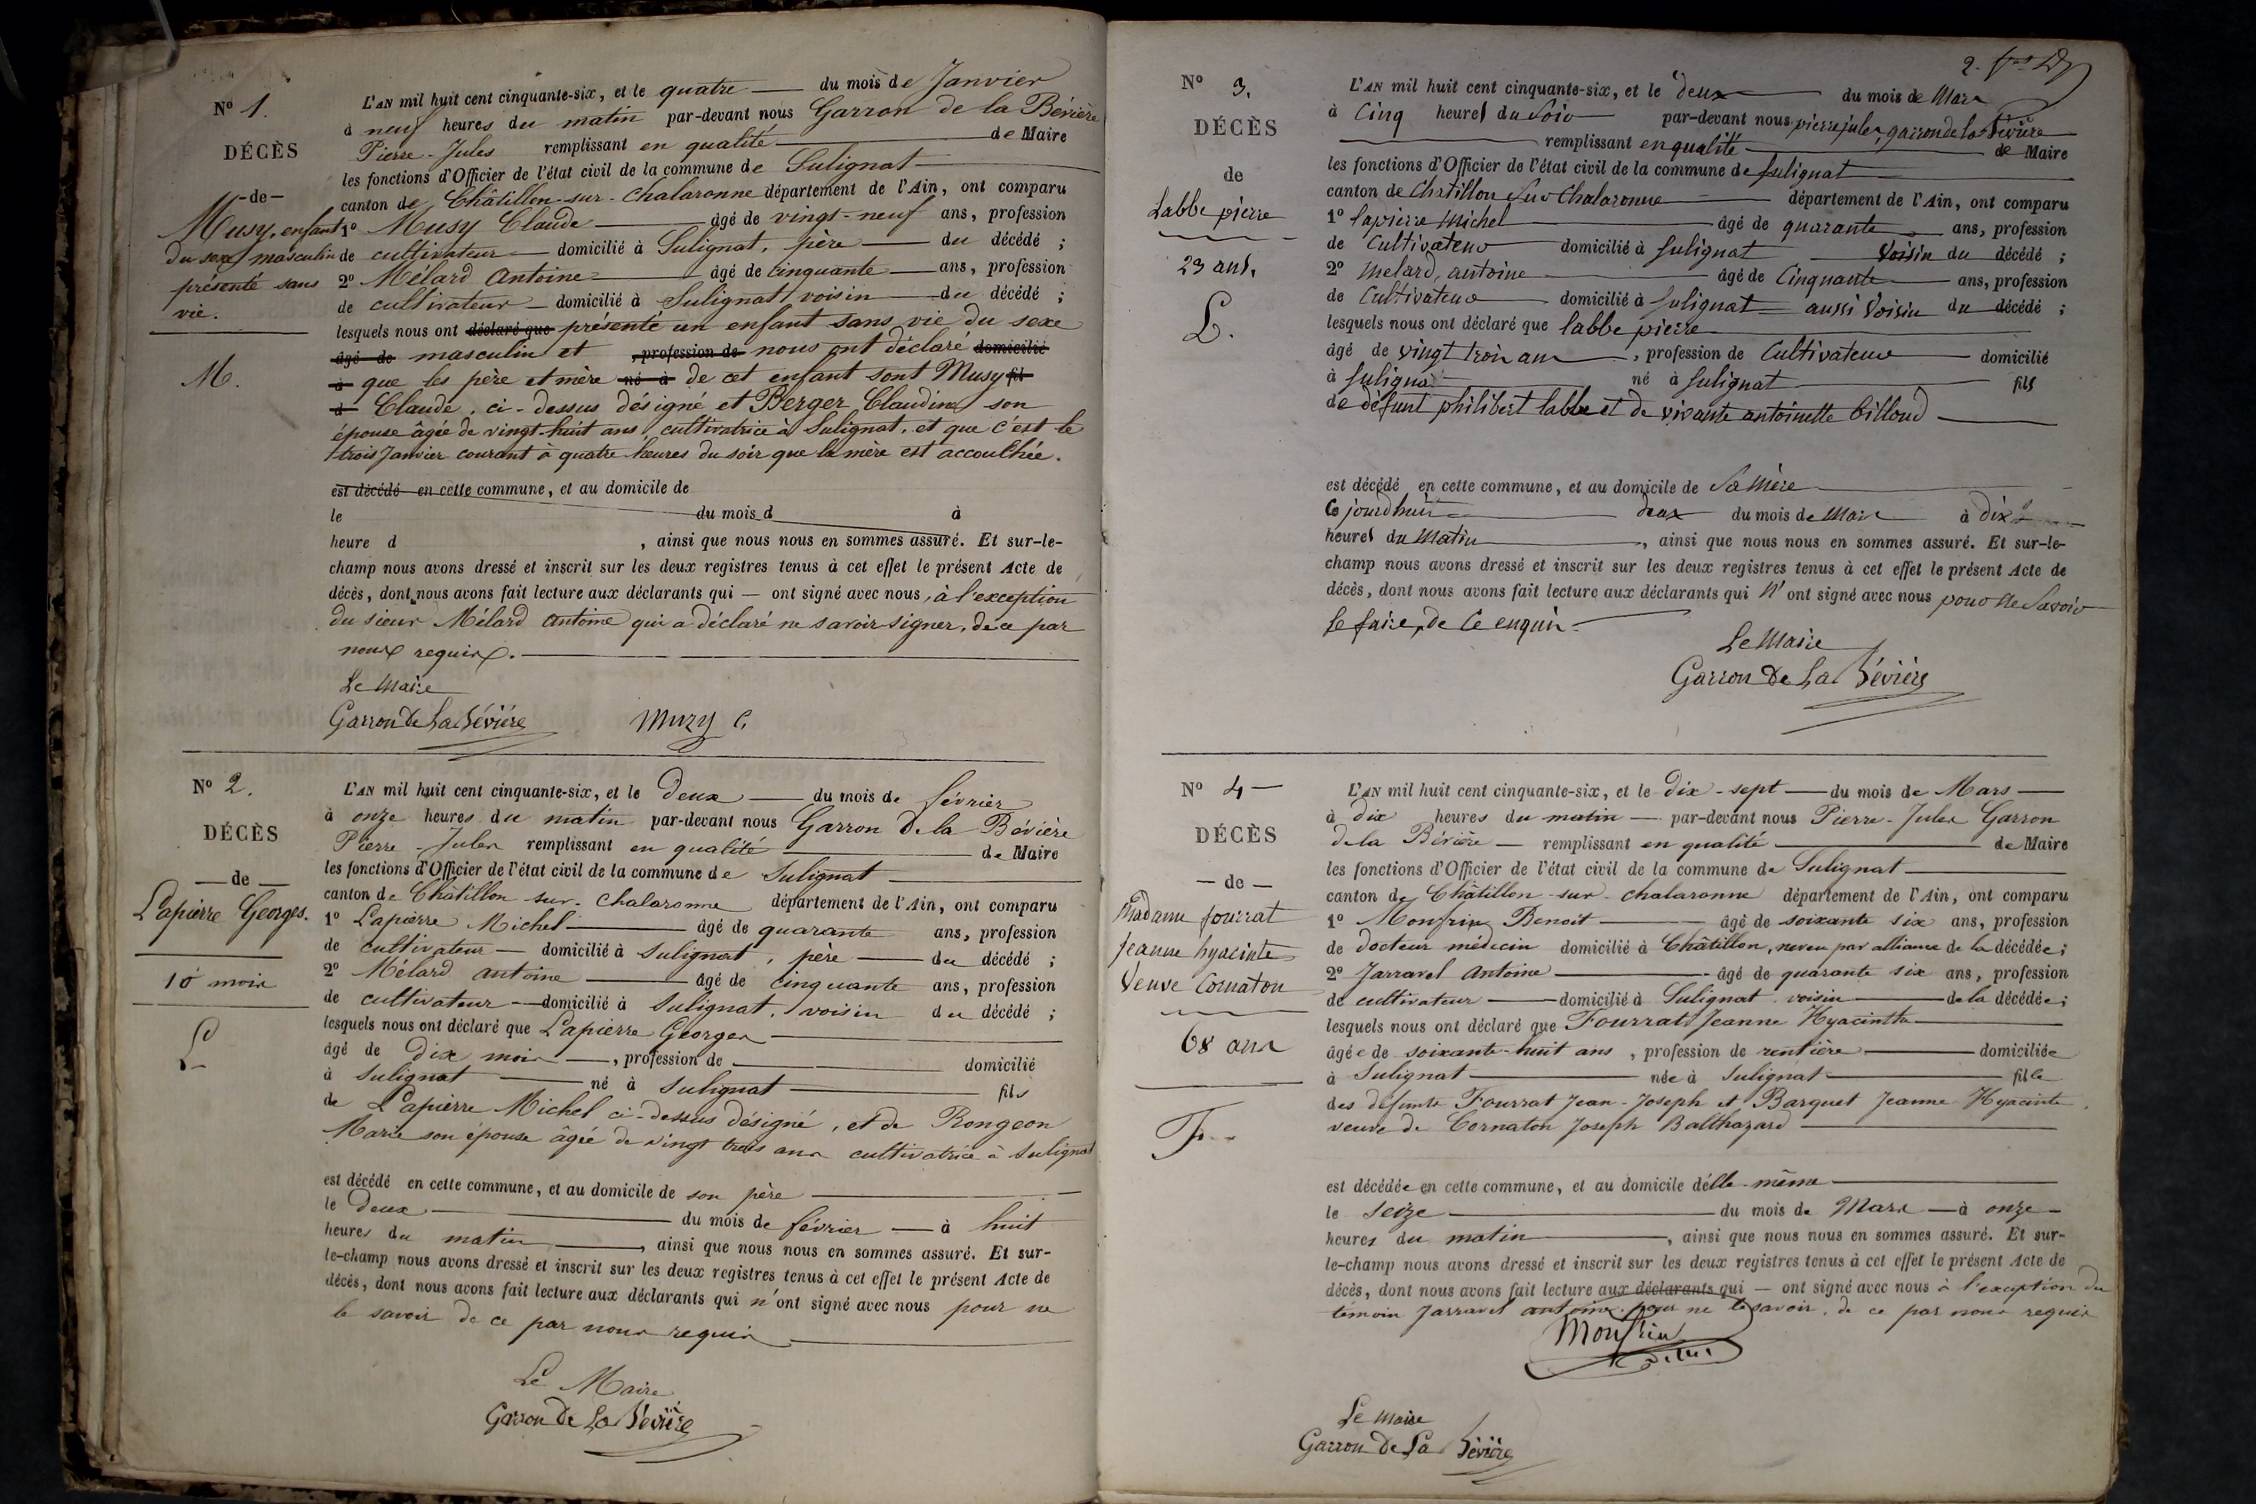 N° 1.
DÉCÈS
- de -
Musy, enfant
du sexe masculin
présenté sans
vie.
M.
L'AN mil huit cent cinquante-six, et le quatre du mois de Janvier
à neuf heures du matin par-devant nous Garron de la Bévière
Pierre-Jules remplissant en qualité de Maire
les fonctions d'Officier de l'état civil de la commune de Sulignat
canton de Châtillon-sur-Chalaronne département de l'Ain, ont comparu
1° Musy Claude âgé de vingt-neuf ans, profession
de cultivateur domicilié à Sulignat, père du décédé ;
2° Mélard Antoine âgé de cinquante ans, profession
de cultivateur domicilié à Sulignat, voisin du décédé ;
lesquels nous ont déclaré que présenté un enfant sans vie du sexe
âgé de masculin et , profession de nous ont déclaré domicilié
à que les père et mère né à de cet enfant sont Musy fil
d Claude, ci-dessus désigné et Berger Claudine son
épouse âgée de vingt-huit ans, cultivatrice à Sulignat, et que c'est le
trois Janvier courant à quatre heures du soir que la mère est accouchée.
est décédé en cette commune, et au domicile de
le du mois d à
heure d , ainsi que nous nous en sommes assuré. Et sur-le-
champ nous avons dressé et inscrit sur les deux registres tenus à cet effet le présent Acte de
décès, dont nous avons fait lecture aux déclarants qui — ont signé avec nous, à l'exception
du sieur Mélard Antoine qui a déclaré ne savoir signer, de ce par
nous requis.
Le Maire
Garron De La Bévière Muzy C.
N° 2.
DÉCÈS
— de —
Lapierre Georges.
10 mois
L
L'AN mil huit cent cinquante-six, et le Deux du mois de février
à onze heures du matin par-devant nous Garron de la Bévière
Pierre-Jules remplissant en qualité de Maire
les fonctions d'Officier de l'état civil de la commune de Sulignat
canton de Châtillon-sur-Chalaronne département de l'Ain, ont comparu
1° Lapierre Michel âgé de quarante ans, profession
de cultivateur domicilié à Sulignat, père du décédé ;
2° Mélard Antoine âgé de cinquante ans, profession
de cultivateur domicilié à Sulignat, voisin du décédé ;
lesquels nous ont déclaré que Lapierre Georges
âgé de Dix mois , profession de domicilié
à Sulignat né à Sulignat fils
de Lapierre Michel ci-dessus désigné, et de Rongeon
Marie son épouse âgée de vingt trois ans cultivatrice à Sulignat
est décédé en cette commune, et au domicile de son père
le deux du mois de février à huit
heures du matin , ainsi que nous nous en sommes assuré. Et sur-
le-champ nous avons dressé et inscrit sur les deux registres tenus à cet effet le présent Acte de
décès, dont nous avons fait lecture aux déclarants qui n'ont signé avec nous pour ne
le savoir de ce par nous requis
Le Maire
Garron De La Bévière
2.
N° 3.
DÉCÈS
de
Labbe pierre
23 ans.
L.
L'AN mil huit cent cinquante-six, et le deux du mois de Mars
à Cinq heures du Soir par-devant nous pierre jules, garron de la Bévière
remplissant en qualité de Maire
les fonctions d'Officier de l'état civil de la commune de Sulignat
canton de Chatillon Sur Chalaronne département de l'Ain, ont comparu
1° lapierre Michel âgé de quarante ans, profession
de Cultivateur domicilié à Sulignat Voisin du décédé ;
2° melard, antoine âgé de Cinquante ans, profession
de Cultivateur domicilié à Sulignat aussi Voisin du décédé ;
lesquels nous ont déclaré que labbe pierre
âgé de vingt trois ans , profession de Cultivateur domicilié
à Sulignat né à Sulignat fils
de défunt philibert labbe et de vivante antoinette billoud
est décédé en cette commune, et au domicile de Sa Mère
Ce jourdhuit deux du mois de Mars à dix
heures du Matin , ainsi que nous nous en sommes assuré. Et sur-le-
champ nous avons dressé et inscrit sur les deux registres tenus à cet effet le présent Acte de
décès, dont nous avons fait lecture aux déclarants qui n'ont signé avec nous pour ne Savoir
le faire, de Ce enquis.
Le Maire
Garron De La Bévière
N° 4
DÉCÈS
— de —
Madame fourrat
jeanne hyacinte
Veuve Cornaton
68 ans
F.
L'AN mil huit cent cinquante-six, et le dix-sept du mois de Mars
à dix heures du matin par-devant nous Pierre-Jules Garron
de la Bévière remplissant en qualité de Maire
les fonctions d'Officier de l'état civil de la commune de Sulignat
canton de Châtillon-sur-Chalaronne département de l'Ain, ont comparu
1° Monfrin Benoit âgé de soixante six ans, profession
de docteur médecin domicilié à Châtillon, neveu par alliance de la décédée ;
2° Jarravel Antoine âgé de quarante six ans, profession
de cultivateur domicilié à Sulignat voisin de la décédée ;
lesquels nous ont déclaré que Fourrat Jeanne Hyacinthe
âgée de soixante-huit ans , profession de rentière domiciliée
à Sulignat née à Sulignat fille
des défunts Fourrat Jean-Joseph et Barquet Jeanne Hyacinte,
veuve de Cornaton Joseph Balthazard
est décédée en cette commune, et au domicile d'elle-même
le seize du mois de Mars à onze
heures du matin , ainsi que nous nous en sommes assuré. Et sur-
le-champ nous avons dressé et inscrit sur les deux registres tenus à cet effet le présent Acte de
décès, dont nous avons fait lecture aux déclarants qui — ont signé avec nous à l'exception du
témoin Jarravel antoine pour ne le savoir, de ce par nous requis
Monfrin
Le Maire
Garron De La Bévière